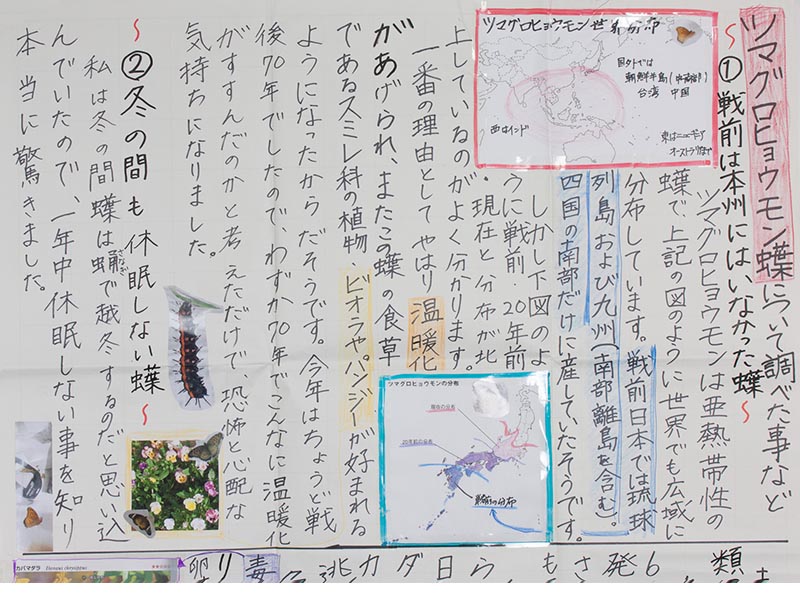 ツマグロヒョウモン蝶について調べた事など
~①戦前は本州にはいなかった蝶~
ツマグロヒョウモンは亜熱帯性の
蝶で、上記の図のように世界でも広域に
分布しています。戦前日本では琉球
列島および九州(南部離島を含む)、
四国の南部だけに産していたそうです。
しかし下図のよ
うに戦前・20年前
・現在と分布が北
上しているのがよく分かります。
一番の理由としてやはり温暖化
があげられ、またこの蝶の食草
であるスミレ科の植物、ビオラやパンジーが好まれる
ようになったからだそうです。今年はちょうど戦
後70年でしたので、わずか70年でこんなに温暖化
がすすんだのかと考えただけで、恐怖と心配な
気持ちになりました。
~②冬の間も休眠しない蝶~
私は冬の間蝶は蛹で越冬するのだと思い込
さなぎ
んでいたので、一年中休眠しない事を知り
本当に驚きました。
ツマグロヒョウモン世界分布
国外では
朝鮮半島
台湾 中国
西はインド
東はニューギニア
オーストラリアまで
ツマグロヒョウモンの分布
現在の分布
20年前の分布
戦前の分布
カバマダラ Danaus chrysippus